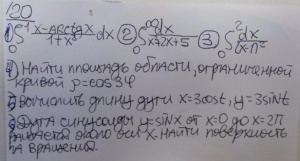 120
1) ∫₀^(e-1) (x-arctgx)/(1+x²) dx 2) ∫₀^∞ dx/(x²+2x+5) 3) ∫₀² dx/(x-1)²
4) Найти площадь области, ограниченной
кривой ρ=cos3φ
5) Вычислить длину дуги x=3cost, y=3sint
Дуга синусоиды y=sinx от x=0 до x=2π
вращается около оси x. Найти поверхность
вращения.